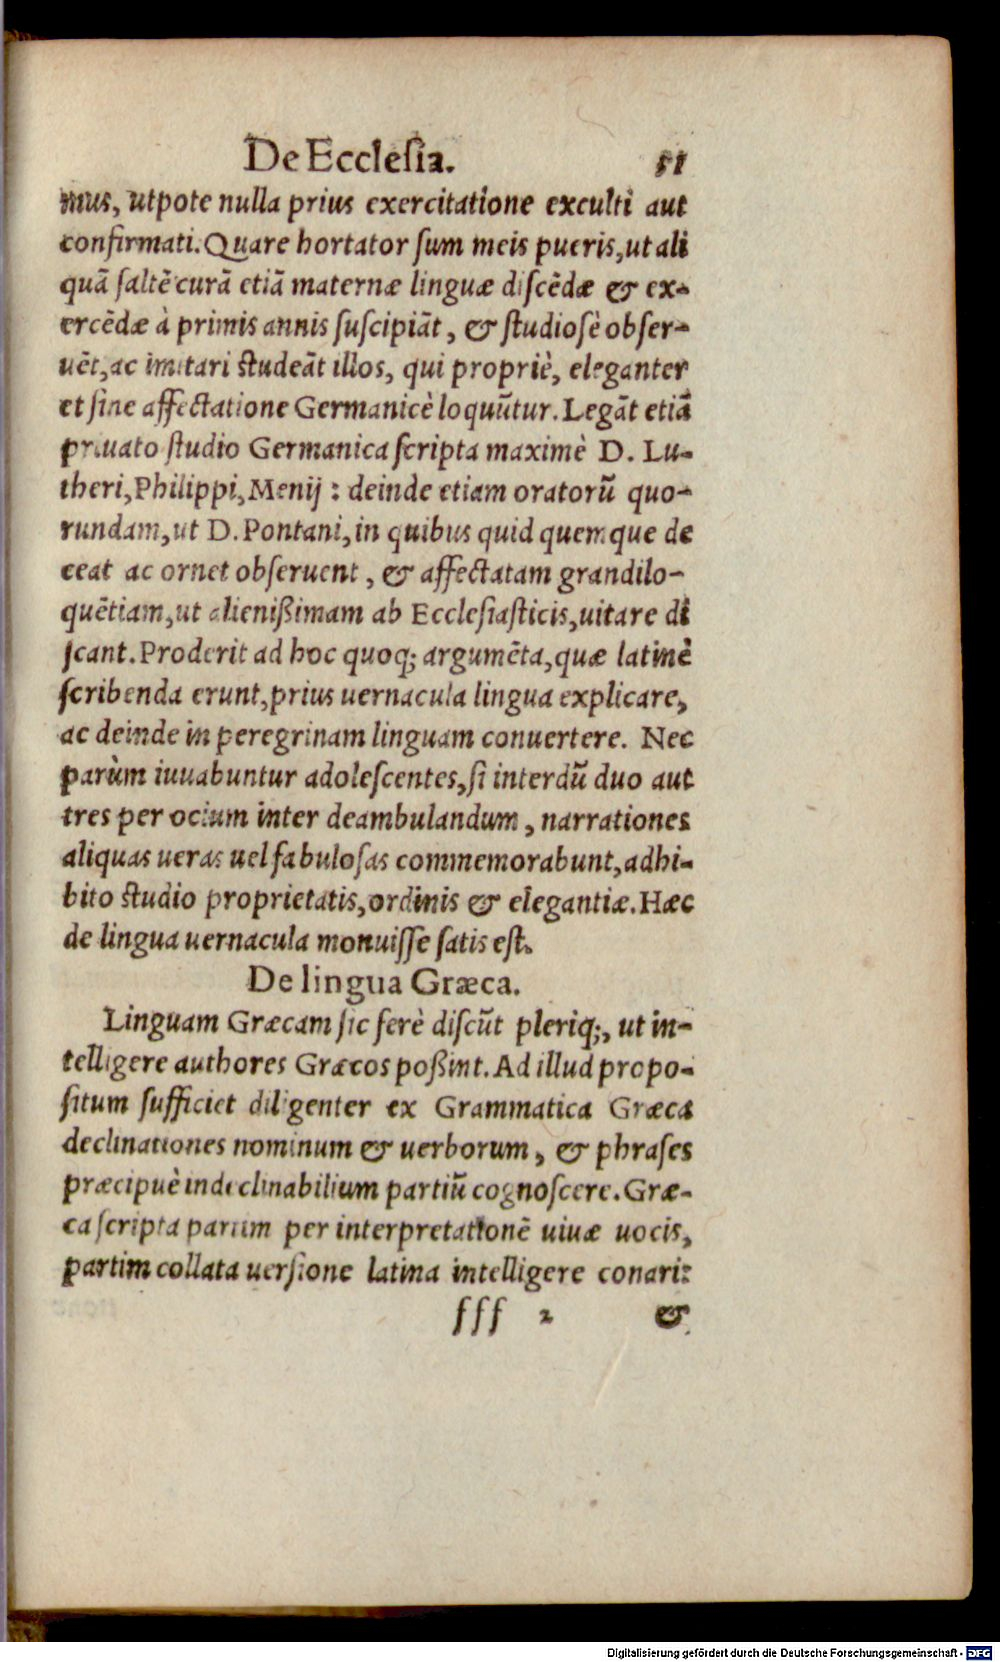 De Ecclesia. 51
mus, utpote nulla prius exercitatione exculti aut
confirmati. Quare hortator sum meis pueris, ut ali
quã saltẽ curã etiã maternæ linguæ discẽdæ & ex-
ercẽdæ à primis annis suscipiãt, & studiosè obser-
uẽt, ac imitari studeãt illos, qui propriè, eleganter
et sine affectatione Germanicè loquũtur. Legãt etiã
priuato studio Germanica scripta maximè D. Lu-
theri, Philippi, Menij : deinde etiam oratorũ quo-
rundam, ut D. Pontani, in quibus quid quemque de
ceat ac ornet obseruent, & affectatam grandilo-
quẽtiam, ut alienißimam ab Ecclesiasticis, uitare di
scant. Proderit ad hoc quoq; argumẽta, quæ latinè
scribenda erunt, prius uernacula lingua explicare,
ac deinde in peregrinam linguam conuertere. Nec
parùm iuuabuntur adolescentes, si interdũ duo aut
tres per ocium inter deambulandum, narrationes
aliquas ueras uel fabulosas commemorabunt, adhi-
bito studio proprietatis, ordinis & elegantiæ. Hæc
de lingua uernacula monuisse satis est.
De lingua Græca.
Linguam Græcam sic ferè discũt pleriq;, ut in-
telligere authores Græcos poßint. Ad illud propo-
situm sufficiet diligenter ex Grammatica Græca
declinationes nominum & uerborum, & phrases
præcipuè indeclinabilium partiũ cognoscere. Græ-
ca scripta partim per interpretationẽ uiuæ uocis,
partim collata uersione latina intelligere conari:
fff 2 &
Digitalisierung gefördert durch die Deutsche Forschungsgemeinschaft - DFG